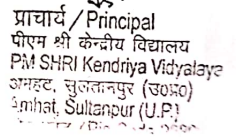 प्राचार्य / Principal
पीएम श्री केन्द्रीय विद्यालय
PM SHRI Kendriya Vidyalaya
अमहट, सुलतानपुर (उ०प्र०)
Amhat, Sultanpur (U.P.)